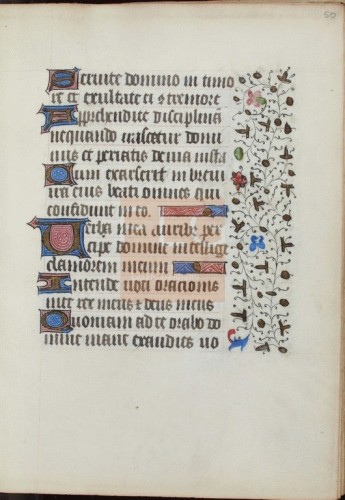 50
Seruite domino in timo
re et exultate ei cu tremore
Apprehendite disciplinam
nequando irascatur domi
nus et pereatis de uia iusta
Cum exarserit in breui
ira eius beati omnes qui
confidunt in eo.
Uerba mea auribus per
cipe domine intellige
clamorem meum
Intende uoci orationis
mee rex meus et deus meus
Quoniam ad te orabo do
mine mane exaudies uo